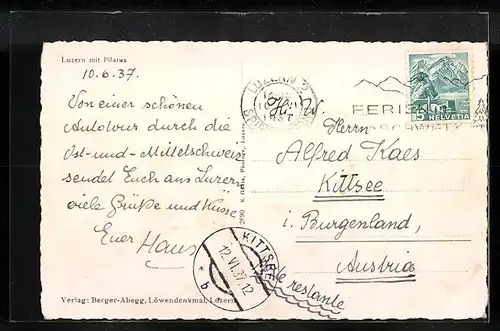 Luzern mit Pilatus
10.6.37.
Von einer schönen
Autotour durch die
Ost- und - Mittelschweiz
sendet Euch aus Luzern
viele Grüße und Küsse
Euer Hans
Verlag: Berger-Abegg, Löwendenkmal, Luzern
LUZERN 2
1937
FERIEN
5 HELVETIA
Herrn
Alfred Kaes
Kittsee
i. Burgenland,
Austria
poste restante
KITTSEE
12.VI.37.12
* b